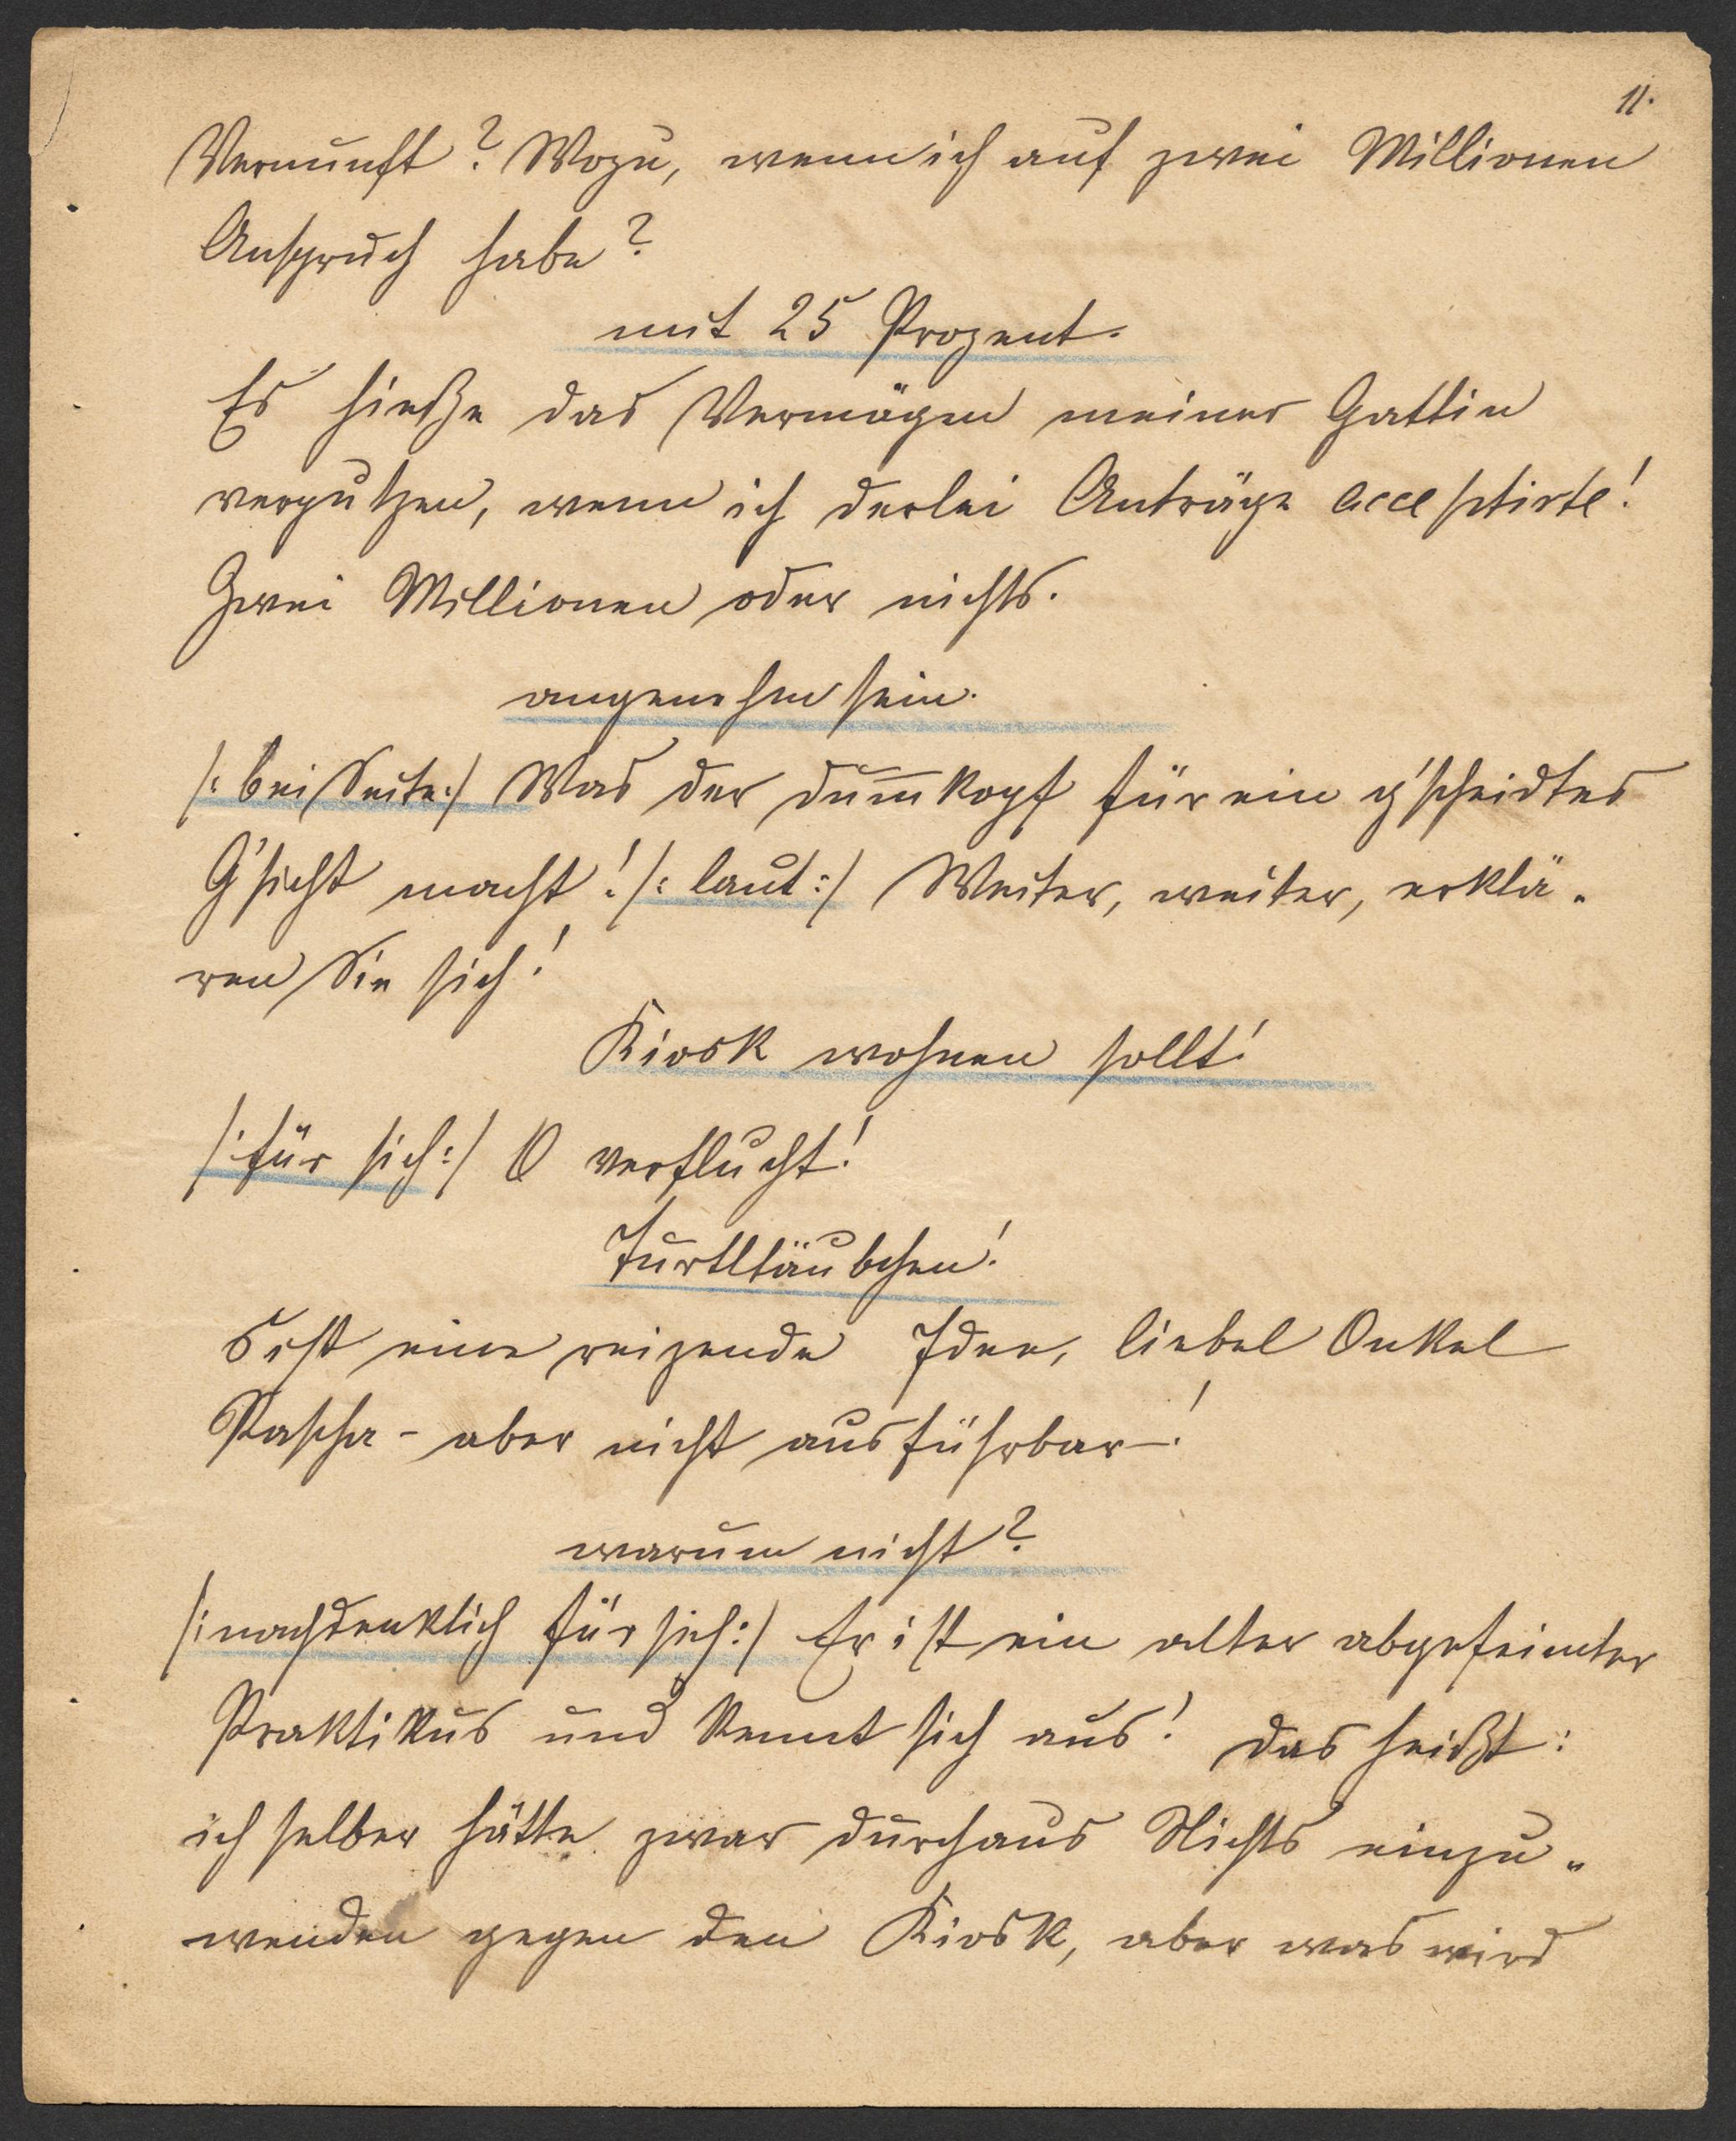 11.
Vernunft? Wozu, wenn ich auf zwei Millionen
Anspruch habe?
mit 25 Prozent.
Es hieße das Vermögen meiner Gattin
verputzen, wenn ich derlei Anträge acceptirte!
Zwei Millionen oder nichts.
angenehm sein.
/: bei Seite:/ Was der Dum̅kopf für ein g'scheidtes
G'sicht macht! /: laut:/ Weiter, weiter, erklä-
ren Sie sich!
Kiosk wohnen sollt!
/: für sich:/ O verflucht!
Turtltäubchen!
S'ist eine reizende Idee, liebel Onkel
Pascha - aber nicht ausführbar-!
warum nicht?
/: nachdenklich für sich:/ Er ist ein alter abgefeimter
Praktikus und kennt sich aus! Das heißt:
ich selber hätte zwar durchaus Nichts einzu-
wenden gegen den Kiosk, aber was wird